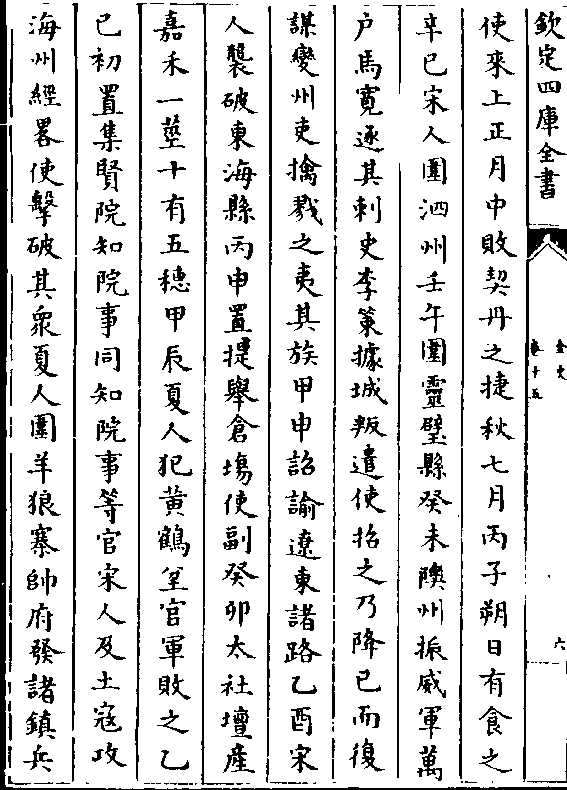 欽定四庫全書
金史
卷十五
六
使來上正月中敗契丹之捷秋七月丙子朔日有食之
辛巳宋人圍泗州壬午圍靈璧縣癸未隩州振威軍萬
户馬寛逐其刺史李策據城叛遣使招之乃降已而復
謀變州吏擒戮之夷其族甲申詔諭遼東諸路乙酉宋
人襲破東海縣丙申置提舉倉塲使副癸卯太社壇産
嘉禾一莖十有五穗甲辰夏人犯黄鶴坌官軍敗之乙
巳初置集賢院知院事同知院事等官宋人及土寇攻
海州經畧使擊破其衆夏人圍羊狼寨帥府發諸鎮兵